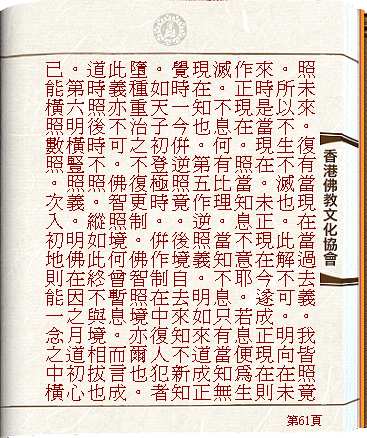 照未來。復有當現在當過去義。我皆照竟
。所以不生不滅也。此解不可。明向在未
來時是當現在。未正現在今遂成正現在則
作正現在。照當知息不意耶。若息便為生
滅。不息何有比理。當知不息只有當知無
現在知也。第五作逆照義。明如來道成正
覺時一今併逆照竟。後境自去來知不新知
。如天子初登極時。併作制在中復人犯者
墮種重治之不復更制。佛智照境亦爾也。
此義亦不可。佛智照境何曾暫息。而言成
道時照後時不照。縱如此終不與境相拔也
。第六明橫豎照義。明佛在因之月道初心
已能橫照數照。次入初地則能一念之中橫
香港佛教文化協會
第61頁